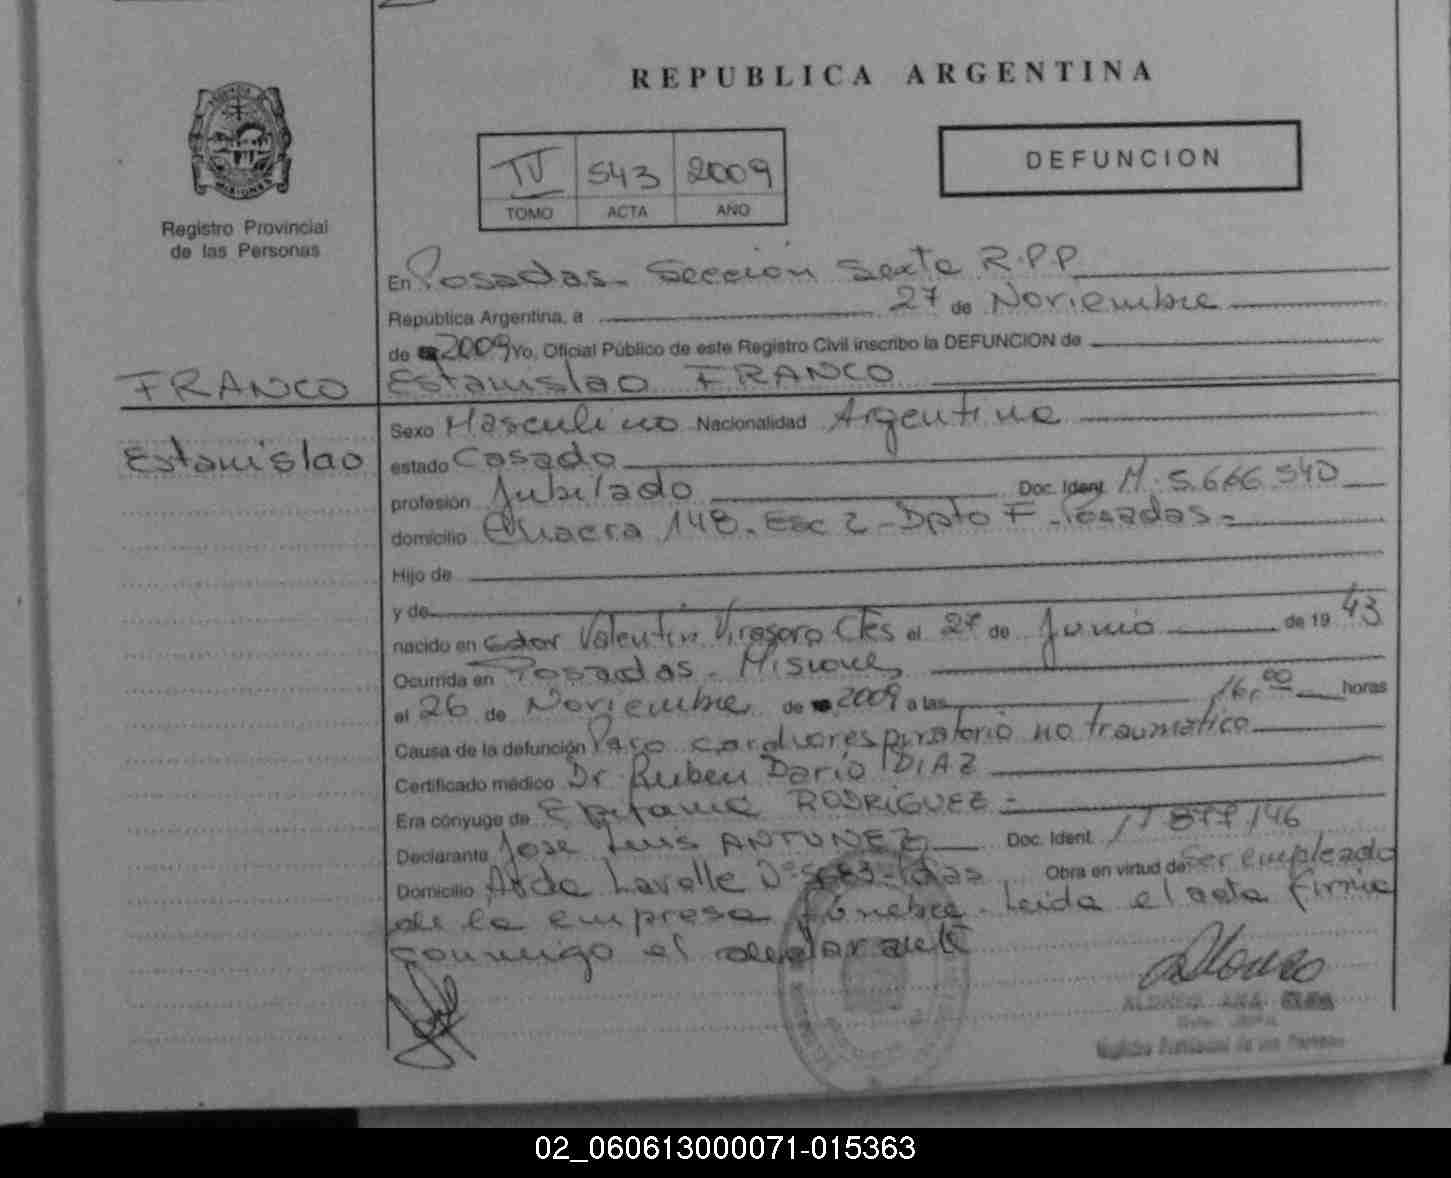 REPUBLICA ARGENTINA
DEFUNCION
IV 543 2009
TOMO ACTA AÑO
Registro Provincial
de las Personas
En Posadas - Sección Sexta R.P.P
República Argentina, a 27 de Noviembre
de 2009 Yo, Oficial Público de este Registro Civil inscribo la DEFUNCION de
FRANCO Estanislao FRANCO
Estanislao
Sexo Masculino Nacionalidad Argentina
estado Casado
profesión Jubilado Doc. Ident. M. 5.666.540
domicilio Chacra 148. Esc 2 - Dpto F - Posadas -
Hijo de
y de
nacido en Gdor Valentin Virasoro Ctes el 27 de Junio de 19 43
Ocurrida en Posadas - Misiones
el 26 de Noviembre de 2009 a las 16,00 horas
Causa de la defunción Paro cardiorespiratorio no traumático
Certificado médico Dr Ruben Dario DIAZ
Era cónyuge de Epifania RODRIGUEZ -
Declarante Jose Luis ANTUNEZ Doc. Ident.
Domicilio Avda Lavalle Obra en virtud de Ser empleado
de la empresa fúnebre - Leida el acta firma
conmigo el declarante
Alonso
ALONSO ANA
Registro Provincial de las Personas
02_060613000071-015363